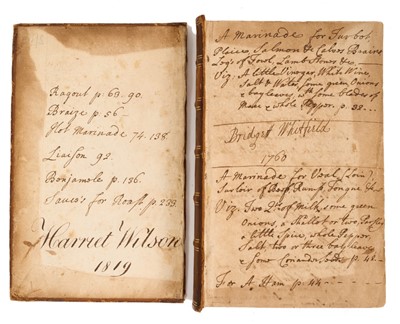 Ragout p. 63. 90.
Braize p. 56
Hot Marinade 74. 138.
Liaison 92.
Bonjamele p. 136.
Sauces for Roast p. 233
Harriet Wilson
1819
A Marinade for Turbot
Plaice, Salmon & Calves Brains
Leg's of Fowl, Lamb Stones &c
Viz. A little Vinegar, White Wine,
Salt & Water some green Onions
& bay leaves, with some blades of
Mace & whole Pepper. p. 38
Bridget Whitfield
1760
A Marinade for Veal (Loin)
Surloin of Beef, Rump, Tongue &c
Viz. Two of Milk, some green
Onions, a Shallot or two, Parsley
a little Spice, whole Pepper,
Salt two or three bay leaves
& some Coriander p. 41
For A Ham p. 44